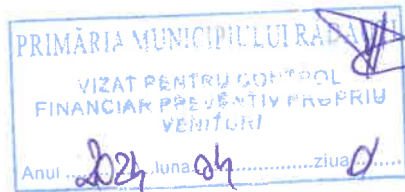 PRIMĂRIA MUNICIPIULUI
VIZAT PENTRU CONTROL
FINANCIAR PREVENTIV PROPRIU
VENITURI
Anul 2024 luna 04 ziua